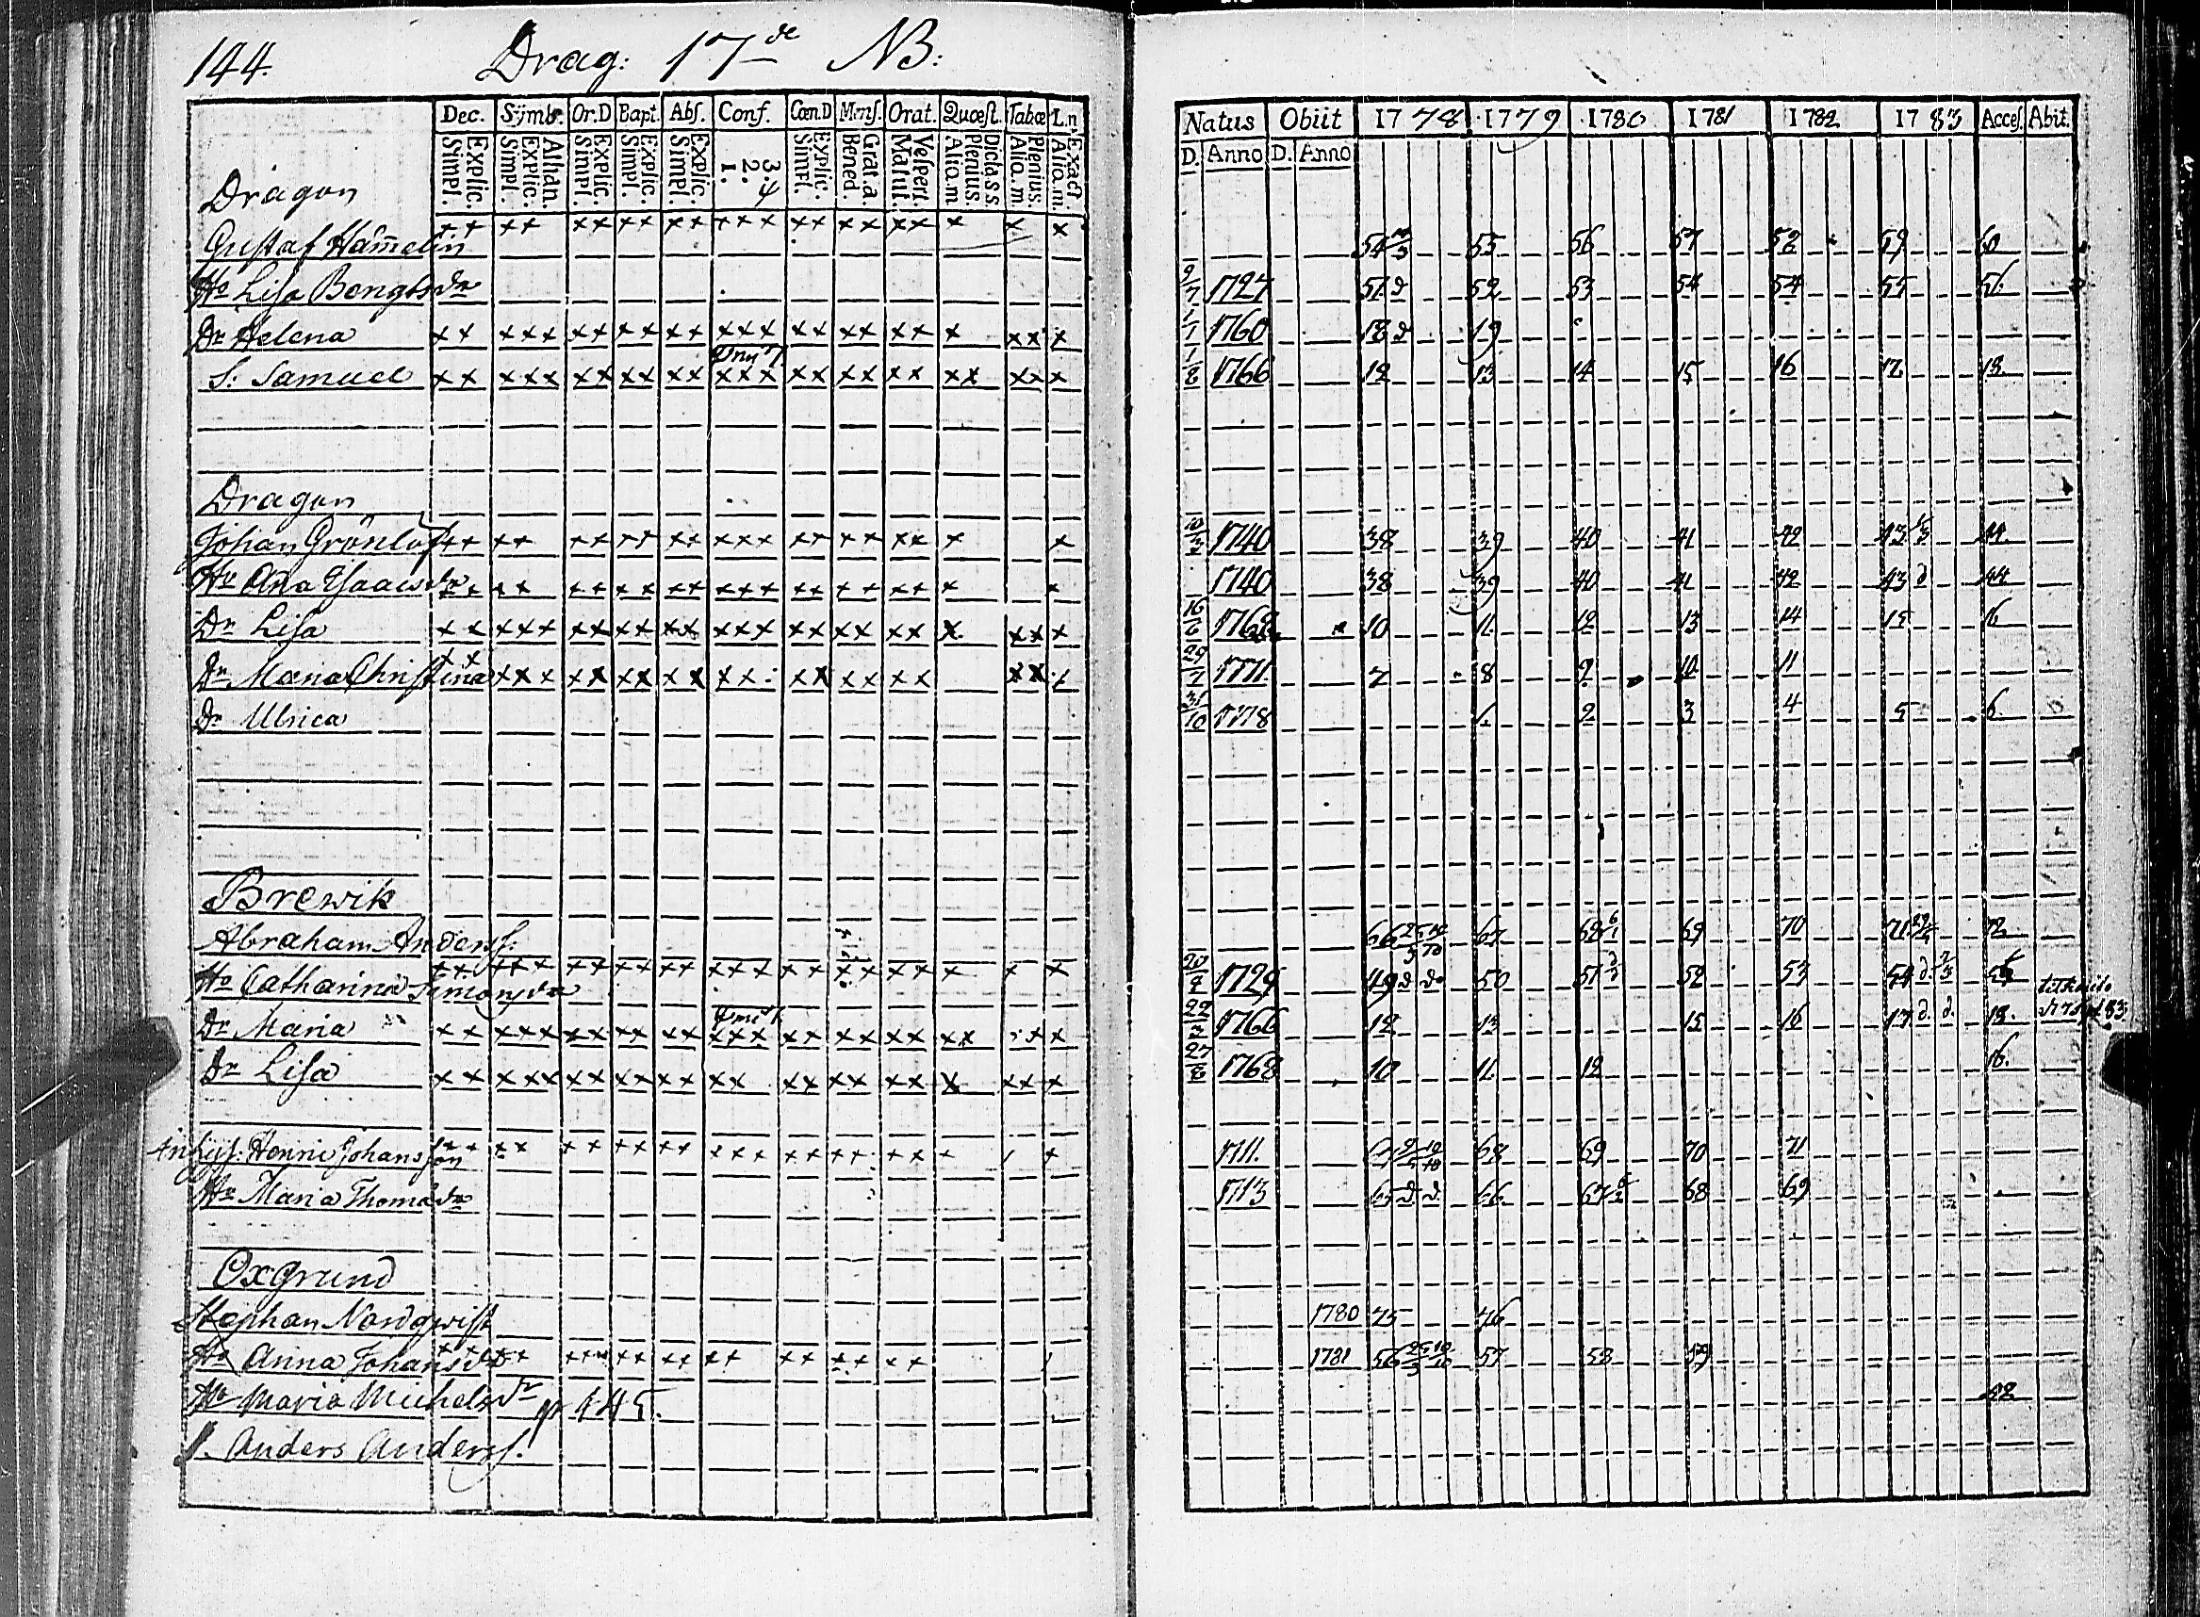 144. Drag: 17de NB:
Dec. Sijmb. Or.D Bapt. Abſ. Conf. Cœn.D Menſ. Orat. Quœſt. Tabœ L.n.
Explic. Simpl. Athan. Explic. Simpl. Explic. Simpl. Explic. Simpl. Explic. Simpl. 3. 4 2. 1. Explic. Simpl. Grat.a. Bened. Veſpert. Matut. Dicta s s. Plenius. Alio.m Plenius. Alio.m Exact Alio.m.
Natus Obiit 1778 1779 1780 1781 1782 1783 Acceſ. Abit.
D. Anno D. Anno
Dragon
Gustaf Ham̄elin 54 55 56 57 58 59 60
Ho Lisa Bengtsdr 9/7 1727 51 d 52 53 54 54 55 56
Dr Helena 1/1 1760 18 d 19
S: Samuel 1/8 1766 12 13 14 15 16 17 18.
Dragon
Johan Grönlöf 1740 38 39 40 41 42 43 44.
Hu Ana Isaacsdr 1740 38 39 40 41 42 43 d 44
Dr Lisa 16/6 1768 10 11 12 13 14 15 16
Dr Maria Christina 29/7 1771. 7 8 9 10 11
Dr Ulrica 31/10 1778 1 2 3 4 5 6
Brewik
Abraham Anderss: 66 67 68 69 70 71 72
Ho Catharina Simonsdr 1729 49 d do 50 51 52 53 54
Dr Maria 1766 12 13 15 16 17 d. d. 18.
Dr Lisa 27/8 1768 10 11 12 16.
Inhys: Henric Johansson 1711. 67 68 69 70 71
Hu Maria Thomasdr 1713 65 d. d. 66 67 68 69
Oxgrund
Stephan Nordqwist 1780 75 76
Ho Anna Johansdr 1781 56 57 58 59
Hu Maria Michelsdr p 145.
S. Anders Anderss.